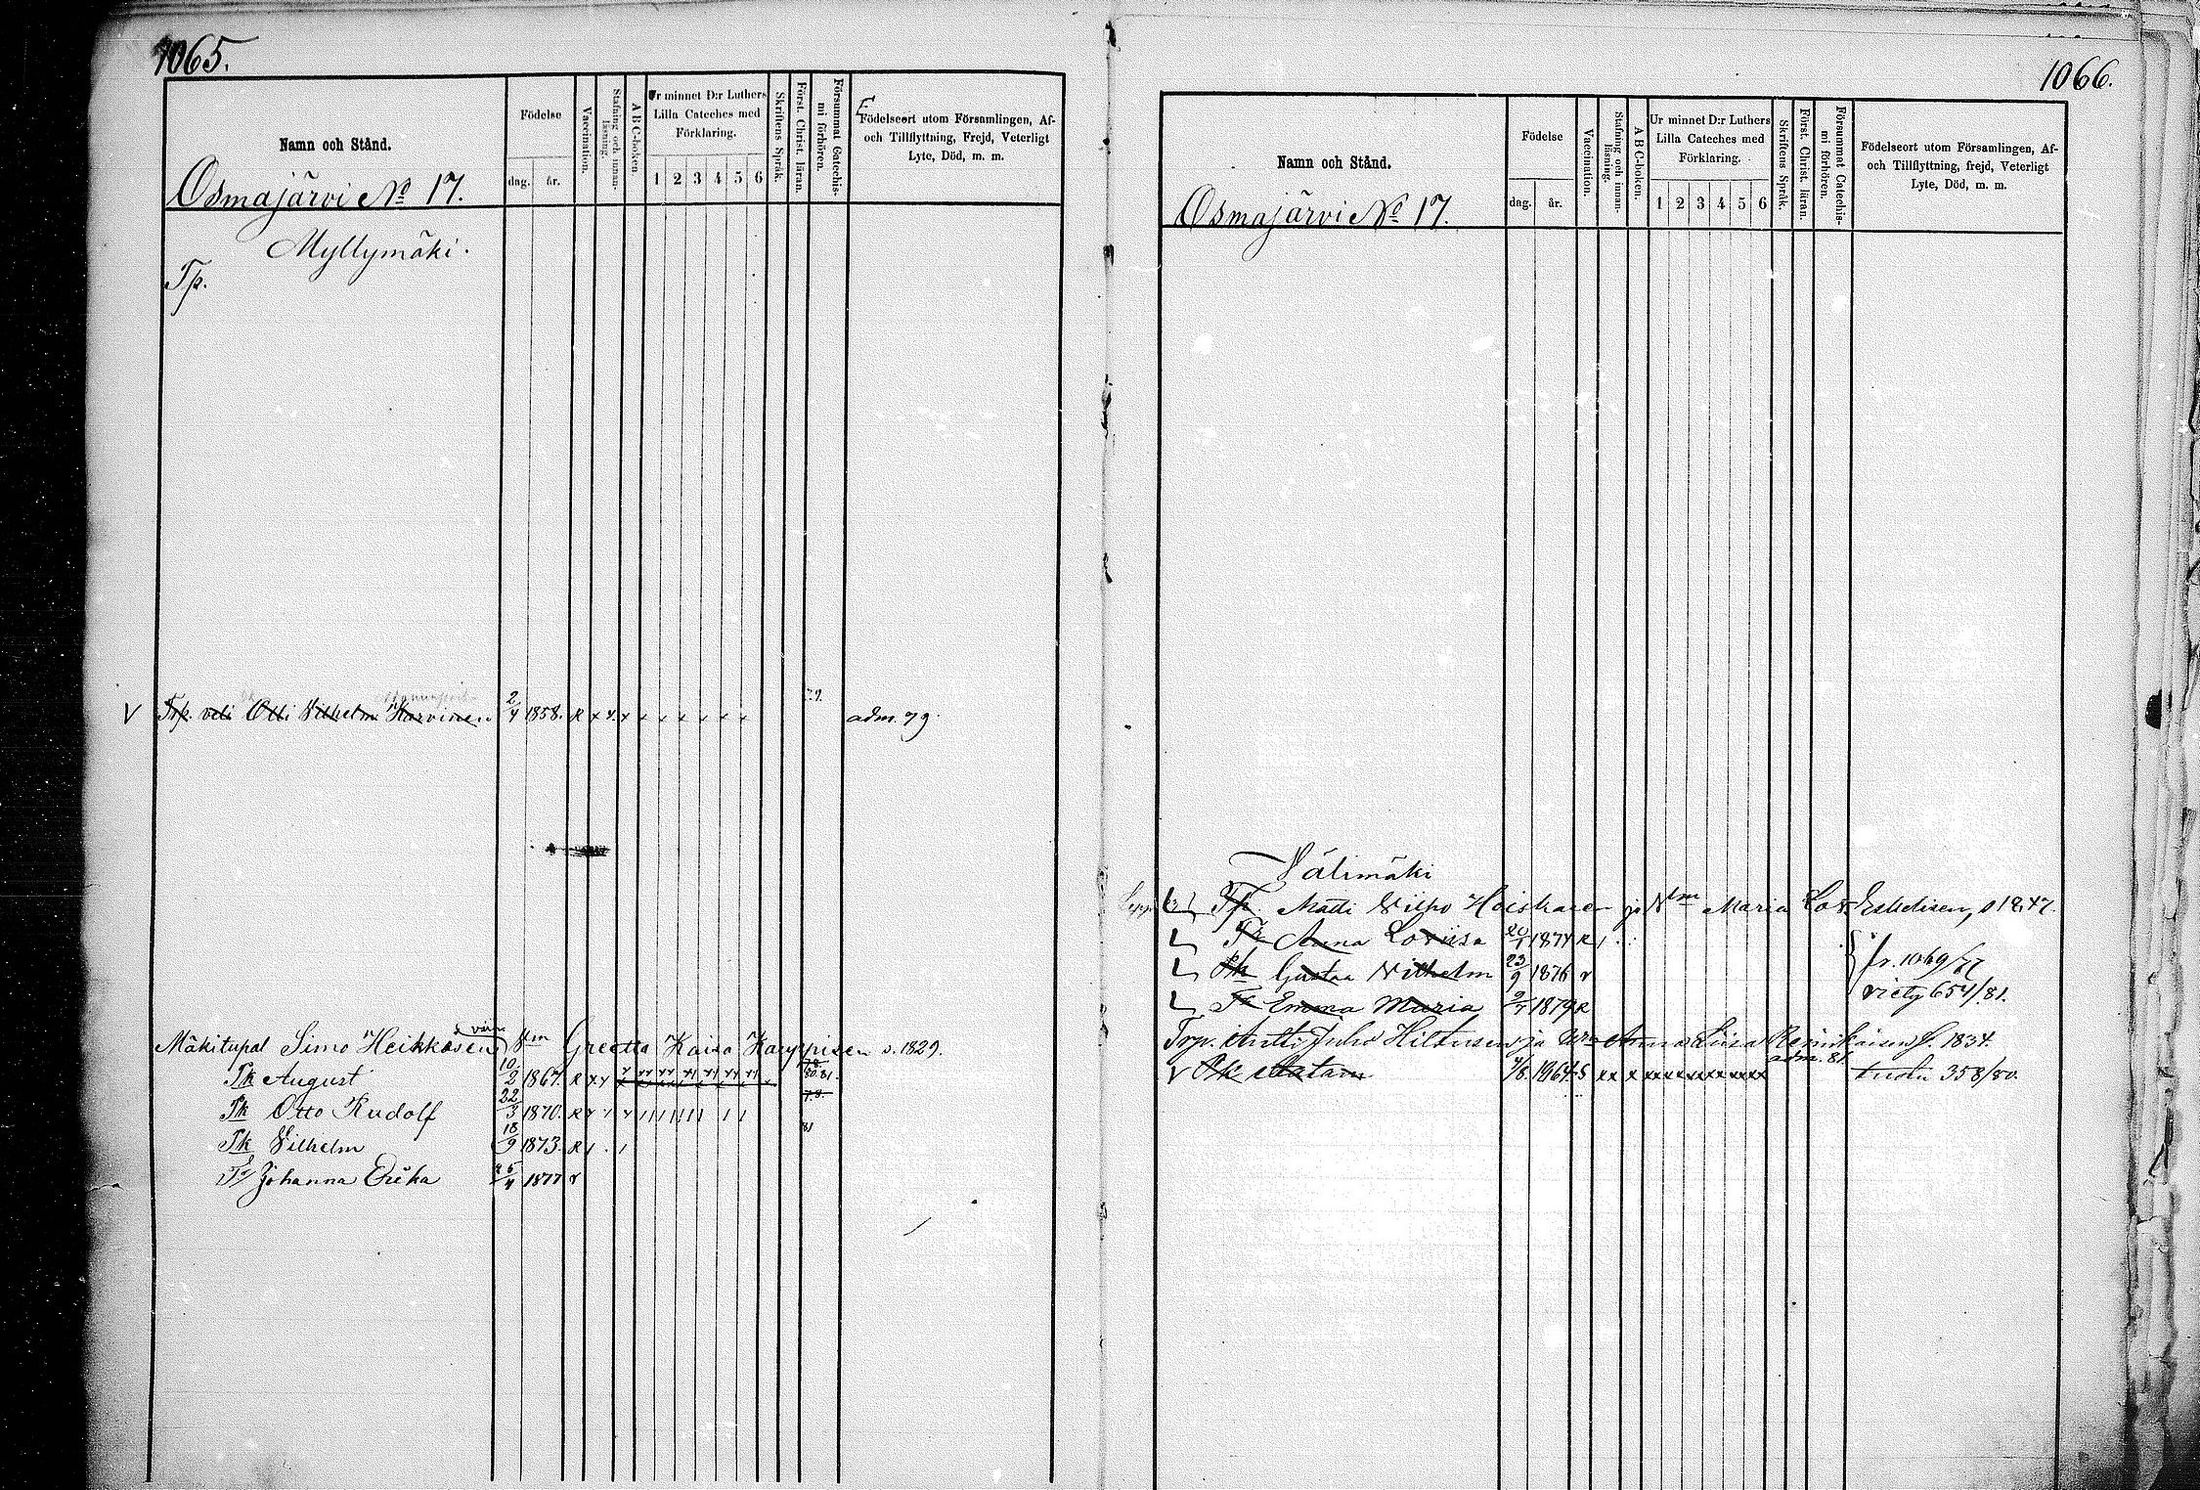 1065.
Namn och Stånd.
Födelse
dag. år.
Vaccination.
Stafning och innan-läsning.
A B C-boken
Ur minnet D:r Luthers Lilla Cateches med Förklaring.
1 2 3 4 5 6
Skriftens Språk.
Först. Christ. läran.
Försummat Catechis-mi förhören.
Födelseort utom Församlingen, Af- och Tillflyttning, Frejd, Veterligt Lyte, Död, m. m.
Osmajärvi No 17.
Myllymäki.
Tp.
V Trp. veli Otti Vilhelm Karvinen 2/4 1858. R x x x x x x x x x 79. adm. 79.
Mäkitupal Simo Heikkosen vaim Greetta Kaisa Kauppisen s. 1829.
Pk August 10/2 1867. R x x 80.81.
Pk Otto Rudolf 22/3 1870. R 78.
Pk Vilhelm 18/9 1873. R 81
Johanna Erika 1877 r
1066.
Namn och Stånd.
Födelse
dag. år.
Vaccination.
Stafning och innan-läsning.
A B C-boken.
Ur minnet D:r Luthers Lilla Cateches med Förklaring.
1 2 3 4 5 6
Skriftens Språk.
Först. Christ. läran.
Försummat Catechis-mi förhören.
Födelseort utom Församlingen, Af- och Tillflyttning, frejd, Veterligt Lyte, Död, m. m.
Osmajärvi No 17.
Välimäki
Tp. Matti Vilho Hoiskasen ja Maria Lov. Eskelisen, s 1847.
Tr Anna Loviisa 20/1 1874 R
Pk Gustaa Vilhelm 23/9 1876 r
fr. 1069/77
Tr Emma Maria 1879 R
viety 654/81.
Torp. Antti Juho Hiltusen ja Anna Liisa Reinikaisen f. 1834.
adm. 81.
v Pk Aatam 4/8 1864 S x x x x x x x x x tullu 358/80.